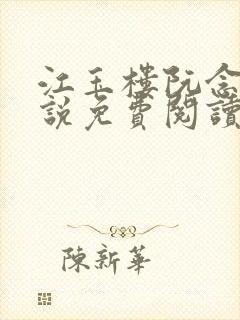 江玉樓阮念
說免費閱讀
陳新華